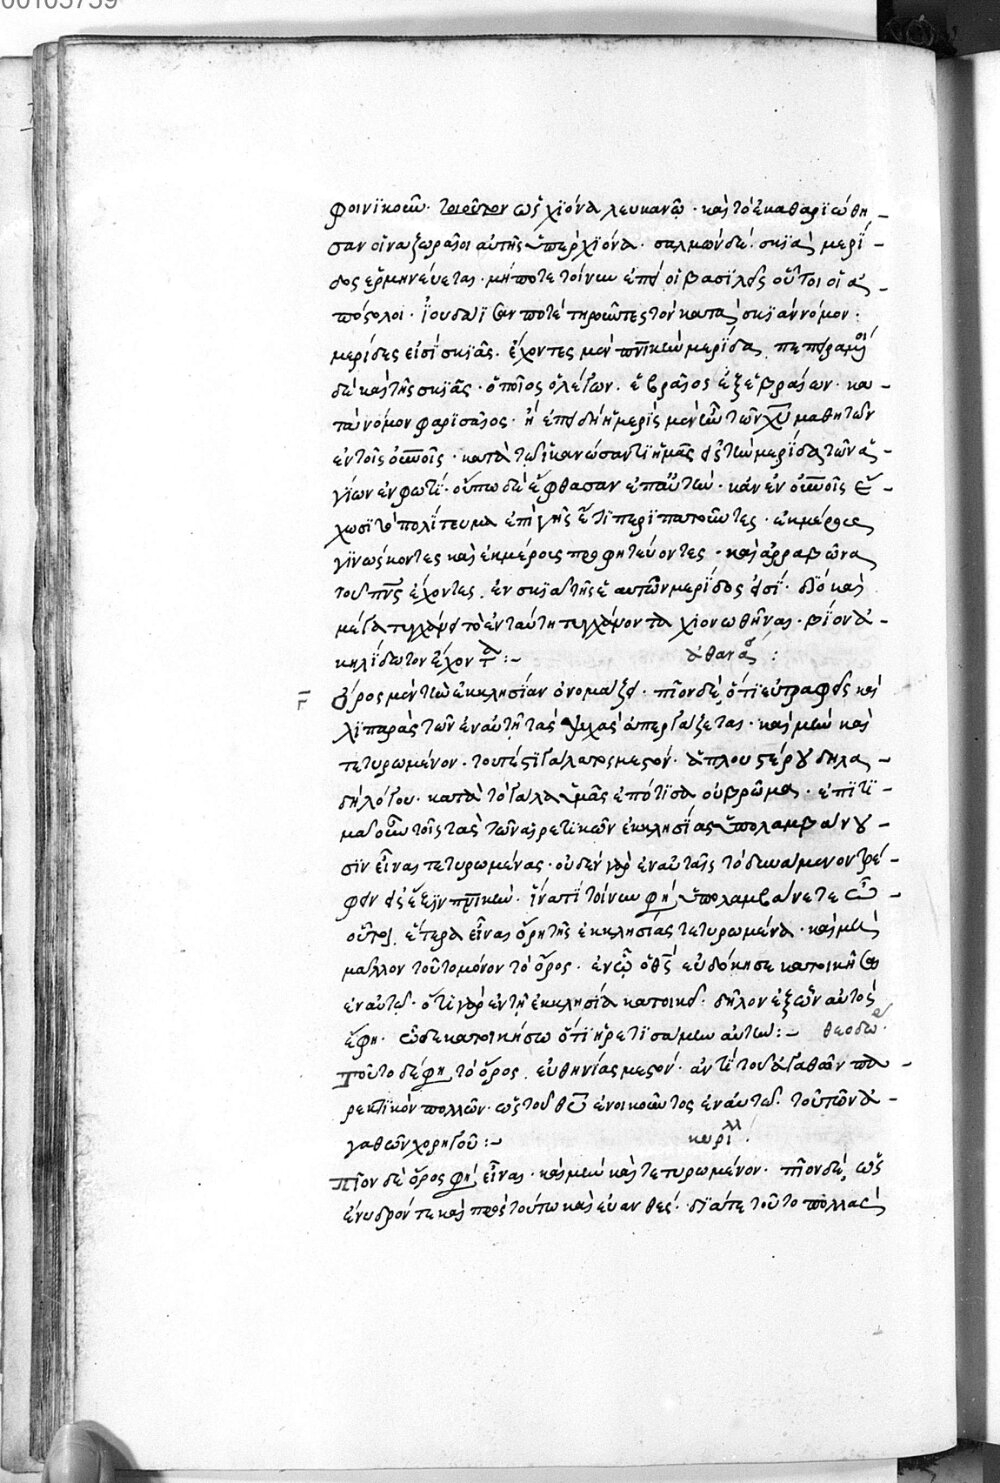 φοινϊκοῦν· τοιοῦτον ὡς χϊόνα λευκανῶ· καὶ τὸ ἐκαθαρϊώθη-
σαν οἱ ναζωραῖοι αὐτῆς ὑπὲρ χϊόνα· σαλμὼν δὲ, σκϊᾶς μερΐ-
δος ἑρμηνεύεται· μήποτε τοίνυν ἐπεὶ οἱ βασϊλεῖς οὗτοι οἱ ἀ-
πόστολοι· ἰουδαϊσάν ποτὲ τηροῦντες τὸν κατὰ σκϊὰν νόμον·
μερίδες εἰσὶ σκϊᾶς· ἔχοντες μὲν πνικὴν μερΐδα
δὲ καὶ τῆς σκϊᾶς· ὁποῖος ὁ λέγων· ἑβραῖος ἐξ ἑβραίων· κα-
τὰ νόμον φαρϊσαῖος· ἢ ἐπειδὴ ἡ μερὶς μὲν ἦν τῶν χῦ μαθητῶν
ἐν τοῖς οὐνοῖς· κατὰ τῷ ἱκανώσαντι ἡμᾶς εἰς τὴν μερίδα τῶν ἁ-
γΐων ἐν φωτί· οὔπω δὲ ἔφθασαν ἐπ' αὐτὴν· κἂν ἐν οὐνοῖς ἔ-
χωσϊ τὸ πολΐτευμα ἐπὶ γῆς ἔτϊ περϊπατοῦντες· ἐκ μέρους
γϊνώσκοντες καὶ ἐκ μέρους προφητεύοντες· καὶ ἀρραβῶνα
τοῦ πνς ἔχοντες, ἐν σκϊᾷ τῆς ἑαυτῶν μερΐδος εἰσΐ· δϊὸ καὶ
χϊονωθῆναι· βΐον ἀ-
κηλΐδωτον ἔχοντα:- ἀθανασ:
Γ ὄρος μὲν τὴν ἐκκλησίαν ὀνομάζει· πῖον δὲ, ὅτϊ εὐτραφεῖς καὶ
λϊπαρὰς τῶν ἐν αὐτῇ τὰς ψυχὰς ἀπεργάζεται· καὶ μὴν καὶ
τετυρωμένον· τουτέστϊ γάλακτος μεστόν· ἁπλουστέρου δηλα-
δὴ λόγου· κατὰ τὸ γάλα ὑμᾶς ἐπότϊσα οὐ βρῶμα· ἐπϊτϊ-
μᾷ οὖν τοῖς τὰς τῶν αἱρετϊκῶν ἐκκλησΐας ὑπολαμβάνου-
σϊν εἶναι τετυρωμένας· οὐδὲν γὰρ ἐν αὐταῖς τὸ δυνάμενον τρέ-
φειν εἰς ἕξϊν πνικήν· ἵνα τί τοίνυν φη ὑπολαμβάνετε ὦ
οὗτοι, ἕτερα εἶναι ὄρη τῆς ἐκκλησίας τετυρωμένα· καὶ μὴ
μᾶλλον τοῦτο μόνον τὸ ὄρος· ἐν ᾧ ὁ θς εὐδόκησε κατοικῆσαι
ἐν αὐτῷ· ὅτϊ γὰρ ἐν τῇ ἐκκλησίᾳ κατοικεῖ· δῆλον ἐξ ὧν αὐτὸς
ἔφη· ὧδε κατοικήσω ὅτϊ ᾑρετϊσάμην αὐτήν:- θεοδωρ·
τοῦτο δέ φη τὸ ὄρος, εὐθηνίας μεστόν· ἀντὶ τοῦ ἀγαθῶν πα-
ρεκτϊκὸν πολλῶν· ὡς τοῦ θῦ ἐνοικοῦντος ἐν αὐτῷ τοῦ τῶν ἀ-
γαθῶν χορηγοῦ:- κυριλλ:
πῖον δὲ ὄρος φη εἶναι· καὶ μὴν καὶ τετυρωμένον· πῖον δὲ, ὡς
ἔνυδρόν τε καὶ πρὸς τούτω καὶ εὐανθές· δϊά τε τοῦτο πολλὰς